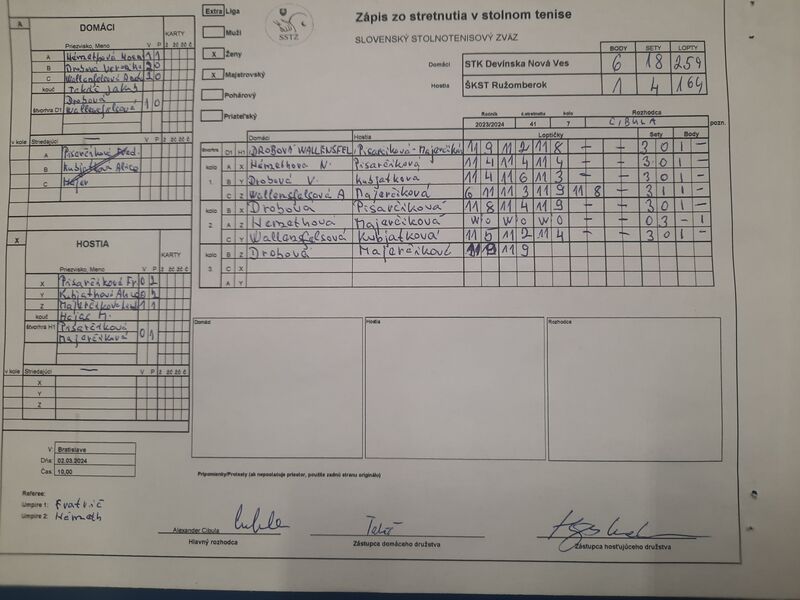 Zápis zo stretnutia v stolnom tenise
SLOVENSKÝ STOLNOTENISOVÝ ZVÄZ
SSTZ
Extra Liga
Muži
X Ženy
X Majstrovský
Pohárový
Priateľský
BODY SETY LOPTY
Domáci STK Devínska Nová Ves 6 18 259
Hostia ŠKST Ružomberok 1 4 164
Ročník č.stretnutia kolo Rozhodca
2023/2024 41 7 CIBULA
A DOMÁCI KARTY
Priezvisko, Meno V P
A Némethová 1 1
B Drobová 2 0
C Wallenfelsová 2 0
kouč Tekáč Jakub
štvorhra D1 Drobová 1 0
Wallenfelsová
v kole Striedajúci
A Pisarčíková
B Kubjatková Alica
C Hajas
X HOSTIA KARTY
Priezvisko, Meno V P
X Pisarčíková 0 2
Y Kubjatková 0 2
Z Majerčíková 1 1
kouč Hajas M.
štvorhra H1 Pisarčíková 0 1
Majerčíková
v kole Striedajúci
X
Y
Z
Domáci Hostia Loptičky Sety Body pozn.
štvorhra D1 H1 DROBOVÁ WALLENSFEL Pisarčíková - Majerčíková 11 9 11 2 11 8 – – 3 0 1 –
kolo A X Némethova N. Pisarčíková 11 4 11 4 11 4 – – 3 0 1 –
1. B Y Drobová V. Kubjatkova 11 4 11 6 11 3 – – 3 0 1 –
C Z Wallensfelsová A Majerčíková 6 11 11 3 11 9 11 8 – 3 1 1 –
kolo B X Drobova Pisarčíková 11 8 11 4 11 9 – – 3 0 1 –
2. A Z Nemethova Majerčíková W O W O W O – – 0 3 – 1
C Y Wallensfelsová Kubjatková 11 5 11 2 11 4 – – 3 0 1 –
kolo B Z Drobová Majerčíková 11 9 11 9
3. C X
A Y
Domáci Hostia Rozhodca
V: Bratislava
Dňa: 02.03.2024
Čas: 10,00
Pripomienky/Protesty (ak nepostačuje priestor, použite zadnú stranu originálu)
Referee:
Umpire 1:
Umpire 2: Németh
Alexander Cibula
Hlavný rozhodca
Zástupca domáceho družstva
Zástupca hosťujúceho družstva